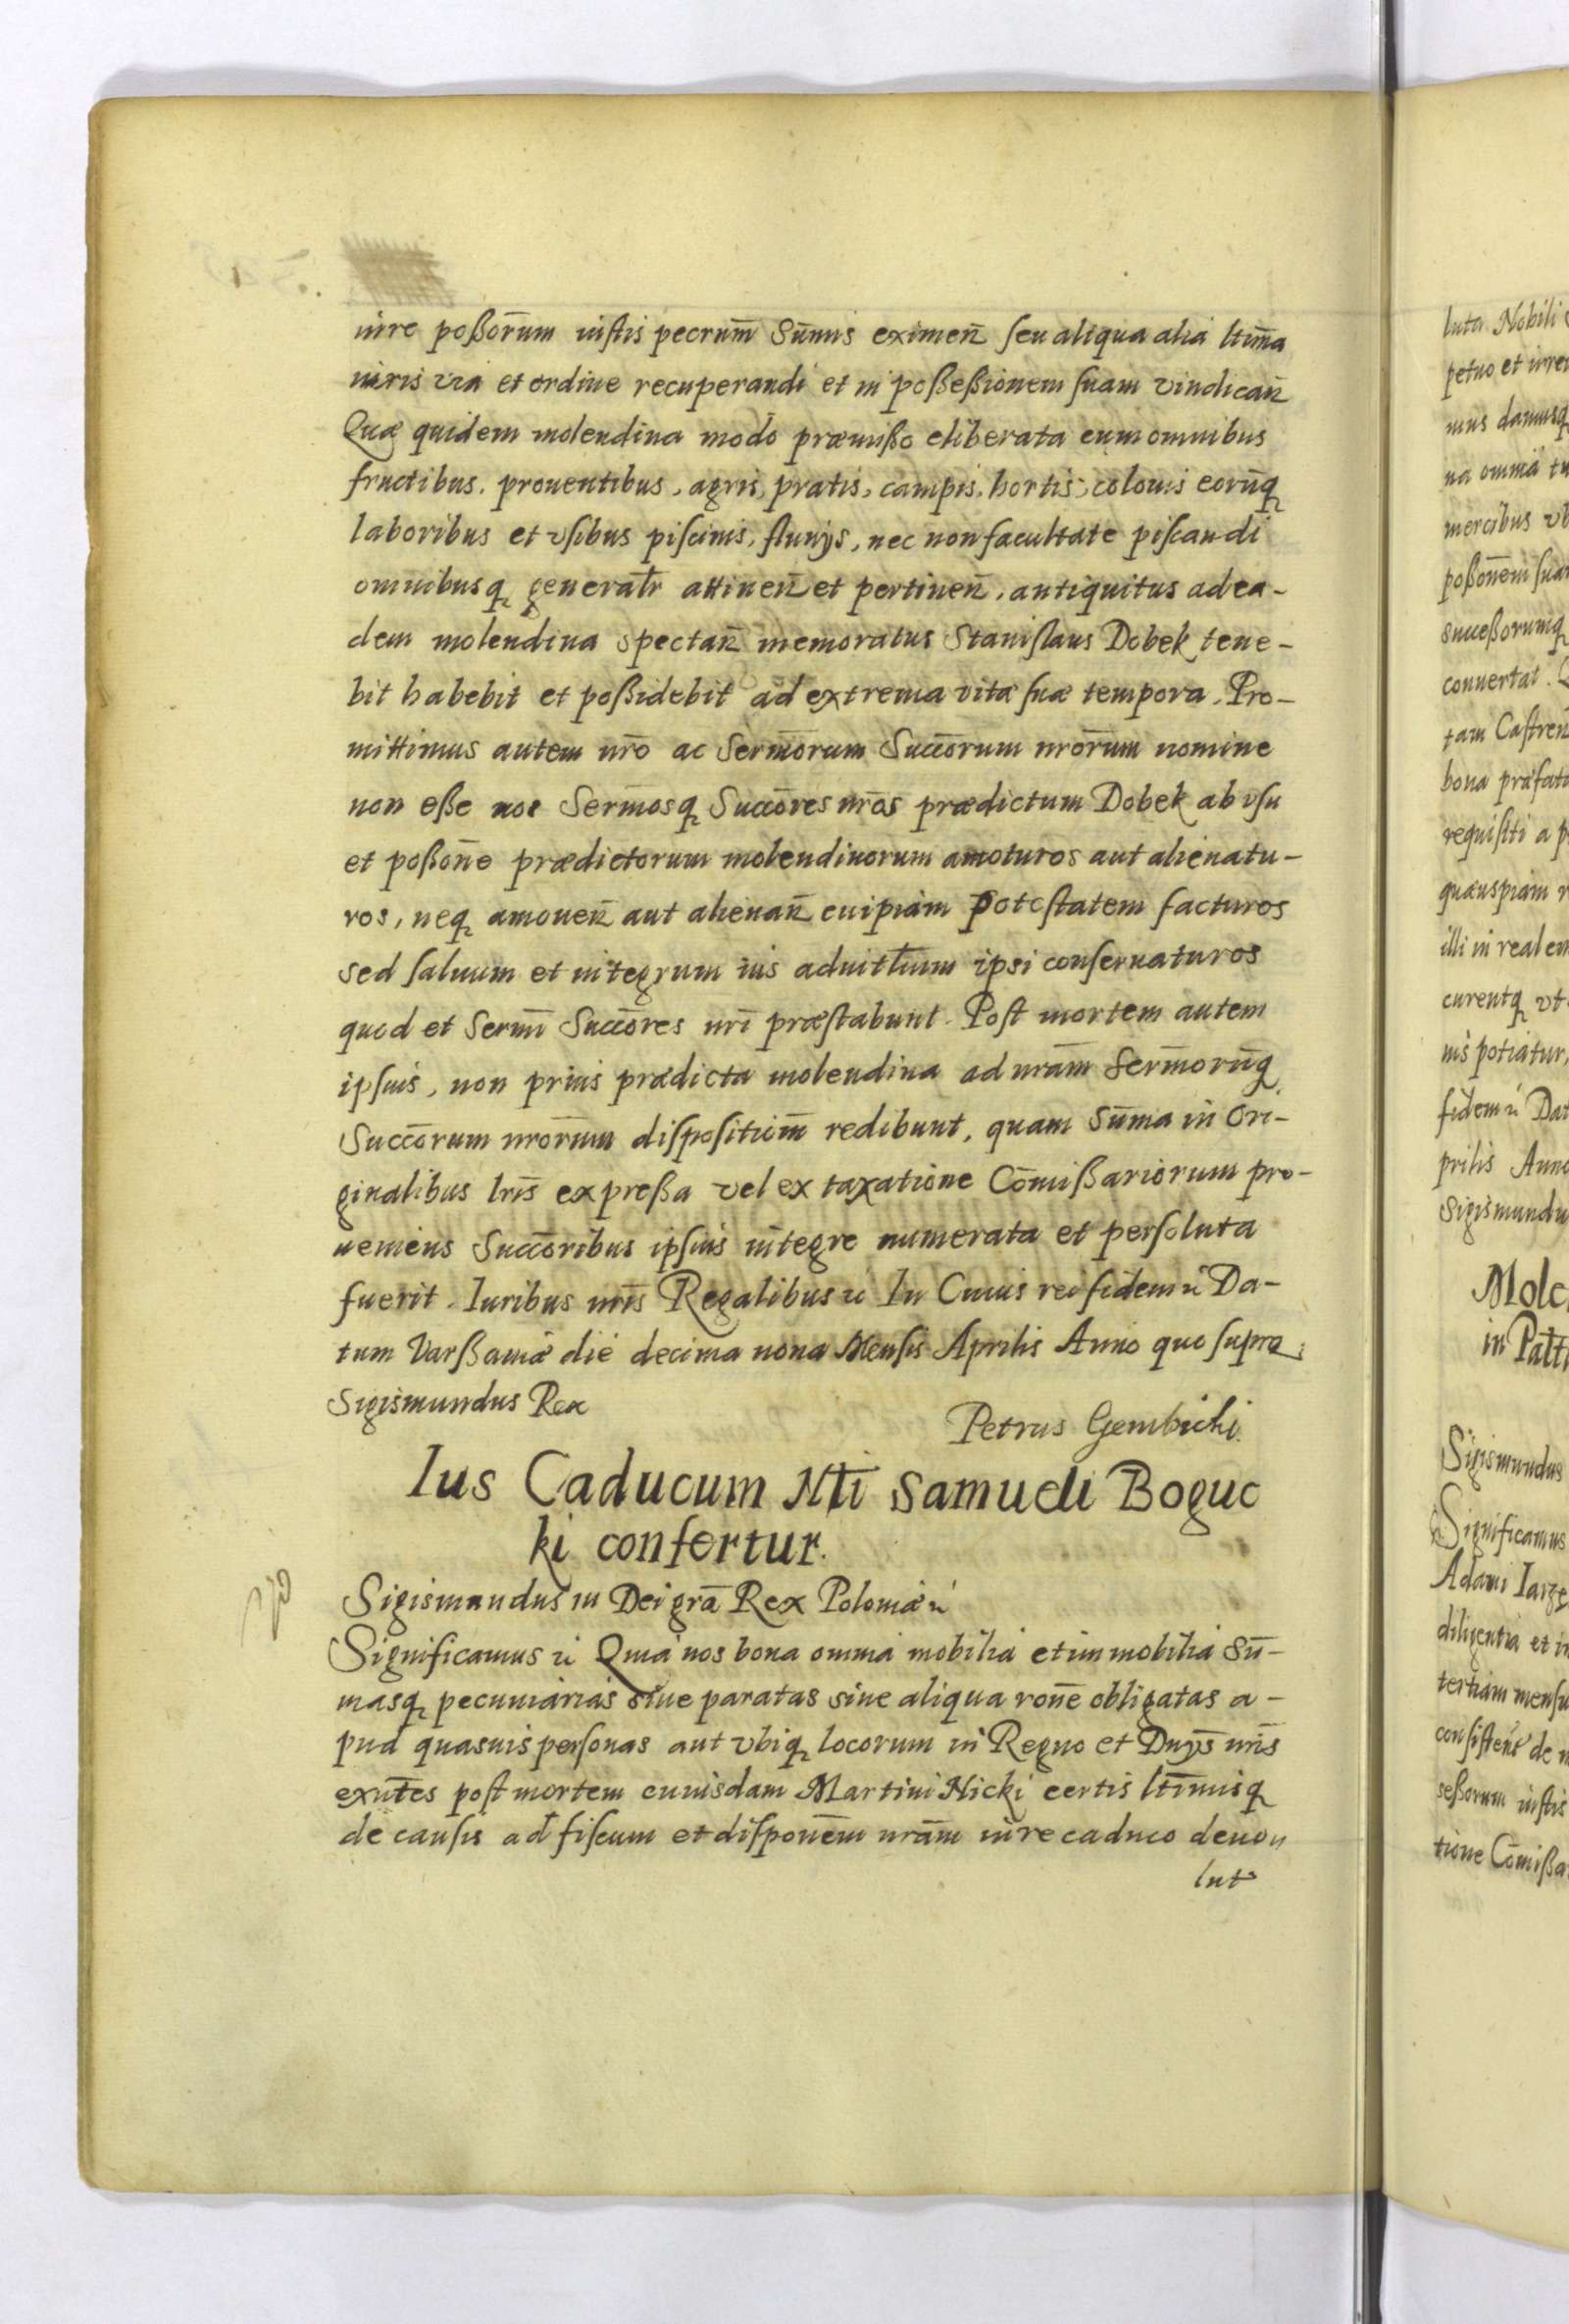 iure poßor̄um iustis pecrum̄ Sum̄is eximen̄ seu aliqua alia ltim̄a
iuris via et ordine recuperandi et in poßeßionem suam vindican̄
Quæ quidem molendina modo præmißo eliberata cum omnibus
fructibus, prouentibus, agris, pratis, campis, hortis, colonis eorūq
laboribus et vsibus piscinis, fluuijs, nec non facultate piscandi
omnibusq generalr̄ attinen̄ et pertinen̄, antiquitus ad ea-
dem molendina spectan̄ memoratus Stanislaus Dobek tene-
bit habebit et poßidebit ad extrema vitæ suæ tempora. Pro-
mittimus autem nr̄o ac Serm̄orum Succ̄orum nr̄orum nomine
non eße nos Serm̄osq Succ̄ores nr̄os prædictum Dobek ab vsu
et poßon̄e prædictorum molendinorum amoturos aut alienatu-
ros, neq amouen̄ aut alienan̄ cuipiam potestatem facturos
sed saluum et integrum ius aduitl̄ium ipsi conseruaturos
quod et Serm̄i Succ̄ores nr̄i præstabunt. Post mortem autem
ipsius, non prius prædicta molendina ad nr̄am Serm̄orūq
Succ̄orum nr̄orum dispositiom̄ redibunt, quam Sum̄a in Ori-
ginalibus lr̄is expreßa vel ex taxatione Com̄ißariorum pro-
ueniens Succ̄oribus ipsius integre numerata et persoluta
fuerit. Iuribus nr̄is Regalibus &c In Cuius rei fidem &c Da-
tum Varßauiæ die decima nona Mensis Aprilis Anno quo supra
Sigismundus Rex
Petrus Gembicki.
Ius Caducum Nti Samueli Boguc
ki confertur.
Sigismundus III Dei grā Rex Poloniæ &c
Significamus &c Quia nos bona omnia mobilia et immobilia Sum̄-
masq pecuniarias siue paratas siue aliqua ron̄e obligatas a-
pud quasuis personas aut vbiq locorum in Regno et Dn̄ijs nr̄is
exn̄tes post mortem cuiusdam Martini Nicki certis ltim̄isq
de causis ad fiscum et disponem̄ nr̄am iure caduco deuo
lut
luta Nobili
petuo et irre
mus damusq
na omnia tu
mercibus vb
poßonem̄ sua
succeßorumq
conuertat.
tam Castren̄
bona præfat
requisiti a p
quauspiam
illi in realem
curentq vt
nis potiatur,
fidem &c Dat
prilis Anno
Sigismundu
Mole
in Patt
Sigismundus
Significamus
Adami Iarze
diligentia et in
tertiam mensu
consisten̄ de
seßorum iustis
tione Com̄ißa